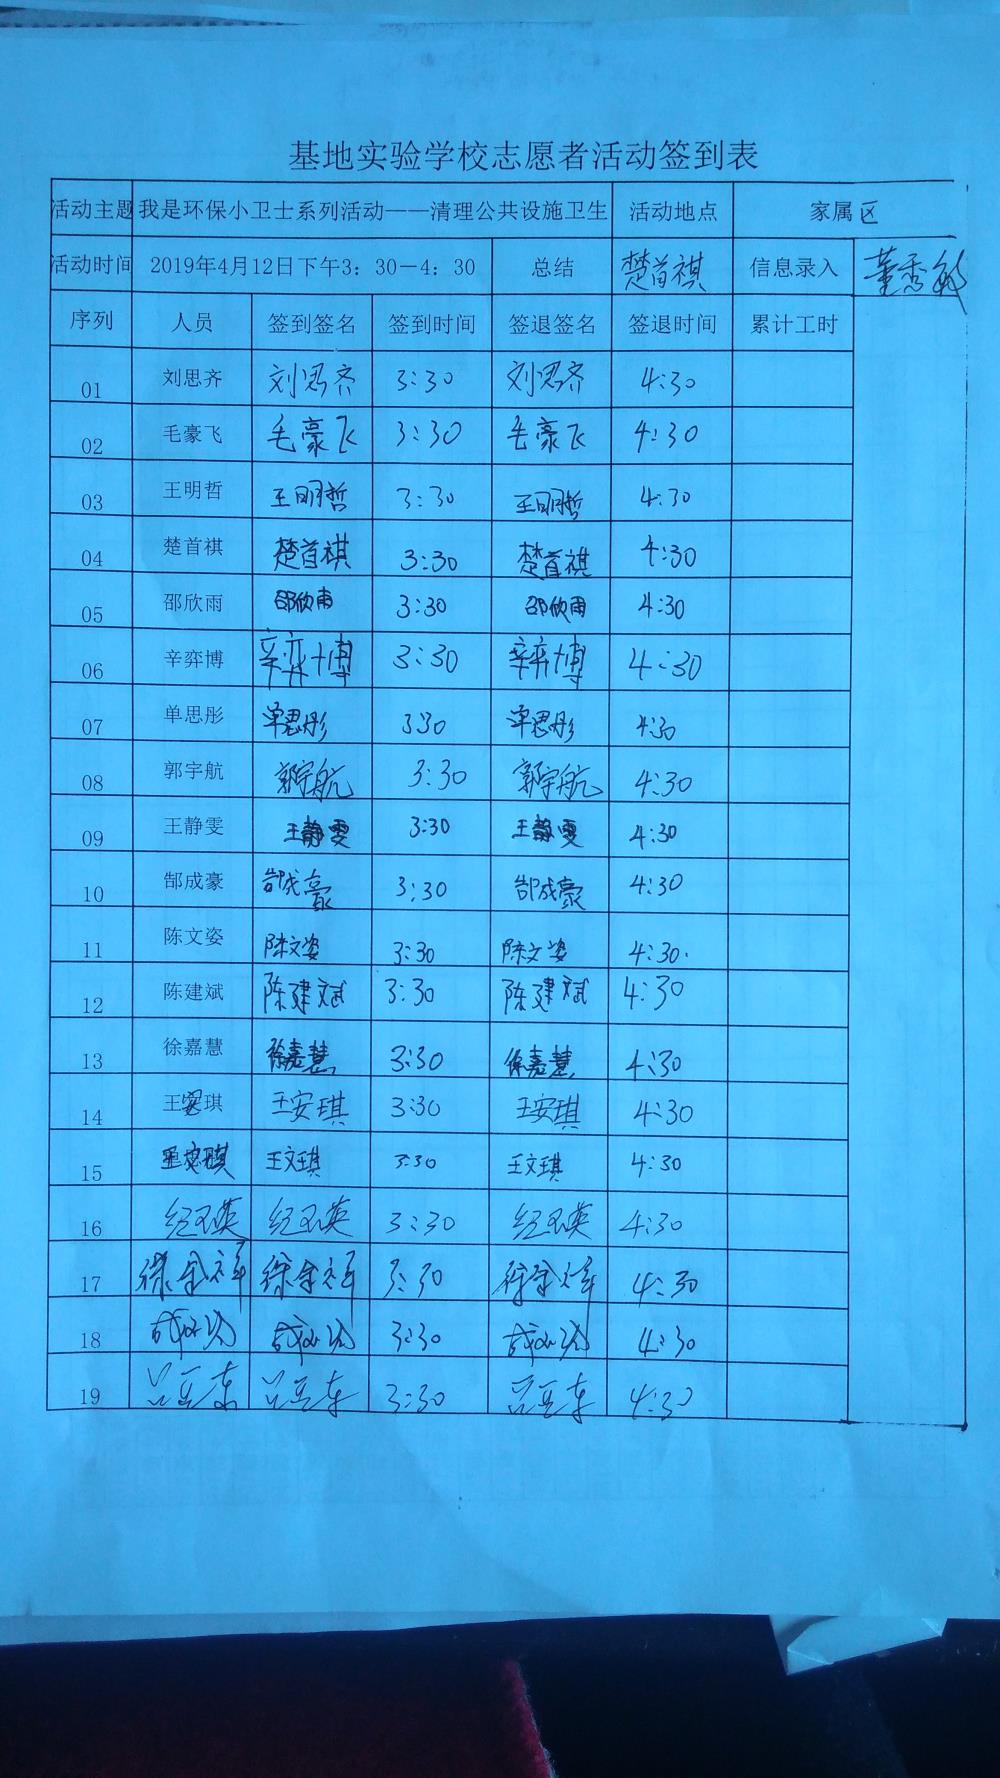 基地实验学校志愿者活动签到表
活动主题 我是环保小卫士系列活动——清理公共设施卫生 活动地点 家属区
活动时间 2019年4月12日下午3：30－4：30 总结 楚首祺 信息录入 董秀敏
序列 人员 签到签名 签到时间 签退签名 签退时间 累计工时
01 刘思齐 刘思齐 3:30 刘思齐 4:30
02 毛豪飞 毛豪飞 3:30 毛豪飞 4:30
03 王明哲 王明哲 3:30 王明哲 4:30
04 楚首祺 楚首祺 3:30 楚首祺 4:30
05 邵欣雨 邵欣雨 3:30 邵欣雨 4:30
06 辛弈博 辛弈博 3:30 辛弈博 4:30
07 单思彤 单思彤 3:30 单思彤 4:30
08 郭宇航 郭宇航 3:30 郭宇航 4:30
09 王静雯 王静雯 3:30 王静雯 4:30
10 郜成豪 郜成豪 3:30 郜成豪 4:30
11 陈文姿 陈文姿 3:30 陈文姿 4:30
12 陈建斌 陈建斌 3:30 陈建斌 4:30
13 徐嘉慧 徐嘉慧 3:30 徐嘉慧 4:30
14 王安琪 王安琪 3:30 王安琪 4:30
15 王文琪 3:30 王文琪 4:30
16 3:30 4:30
17 徐金祥 徐金祥 3:30 徐金祥 4:30
18 3:30 4:30
19 3:30 4:30